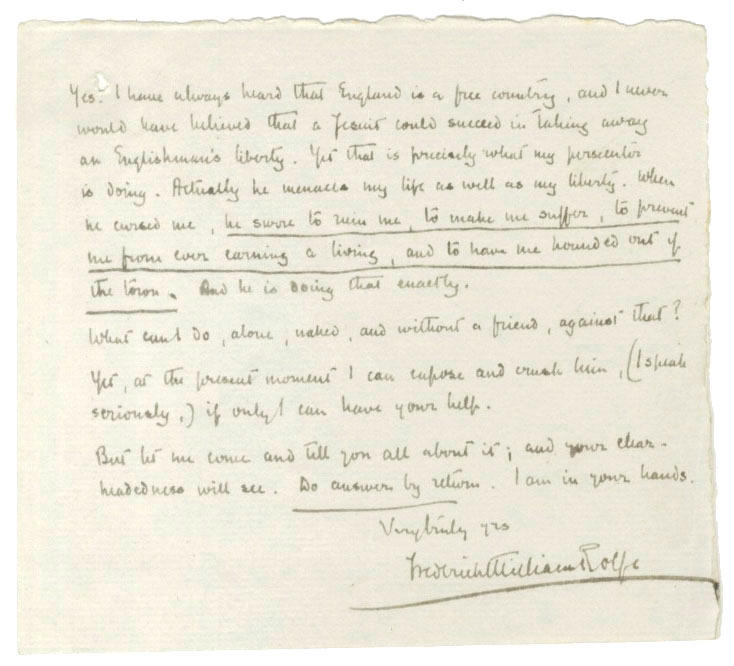 Yes. I have always heard that England is a free country, and I never
would have believed that a Jesuit could succeed in taking away
an Englishman's liberty. Yet that is precisely what my persecutor
is doing. Actually he menaces my life as well as my liberty. When
he cursed me, he swore to ruin me, to make me suffer, to prevent
me from ever earning a living, and to have me hounded out of
the town. And he is doing that exactly.
What can I do, alone, naked, and without a friend, against that?
Yet, at the present moment I can expose and crush him, (I speak
seriously,) if only I can have your help.
But let me come and tell you all about it; and your clear-
headedness will see. Do answer by return. I am in your hands.
Very truly yrs
Frederick William Rolfe